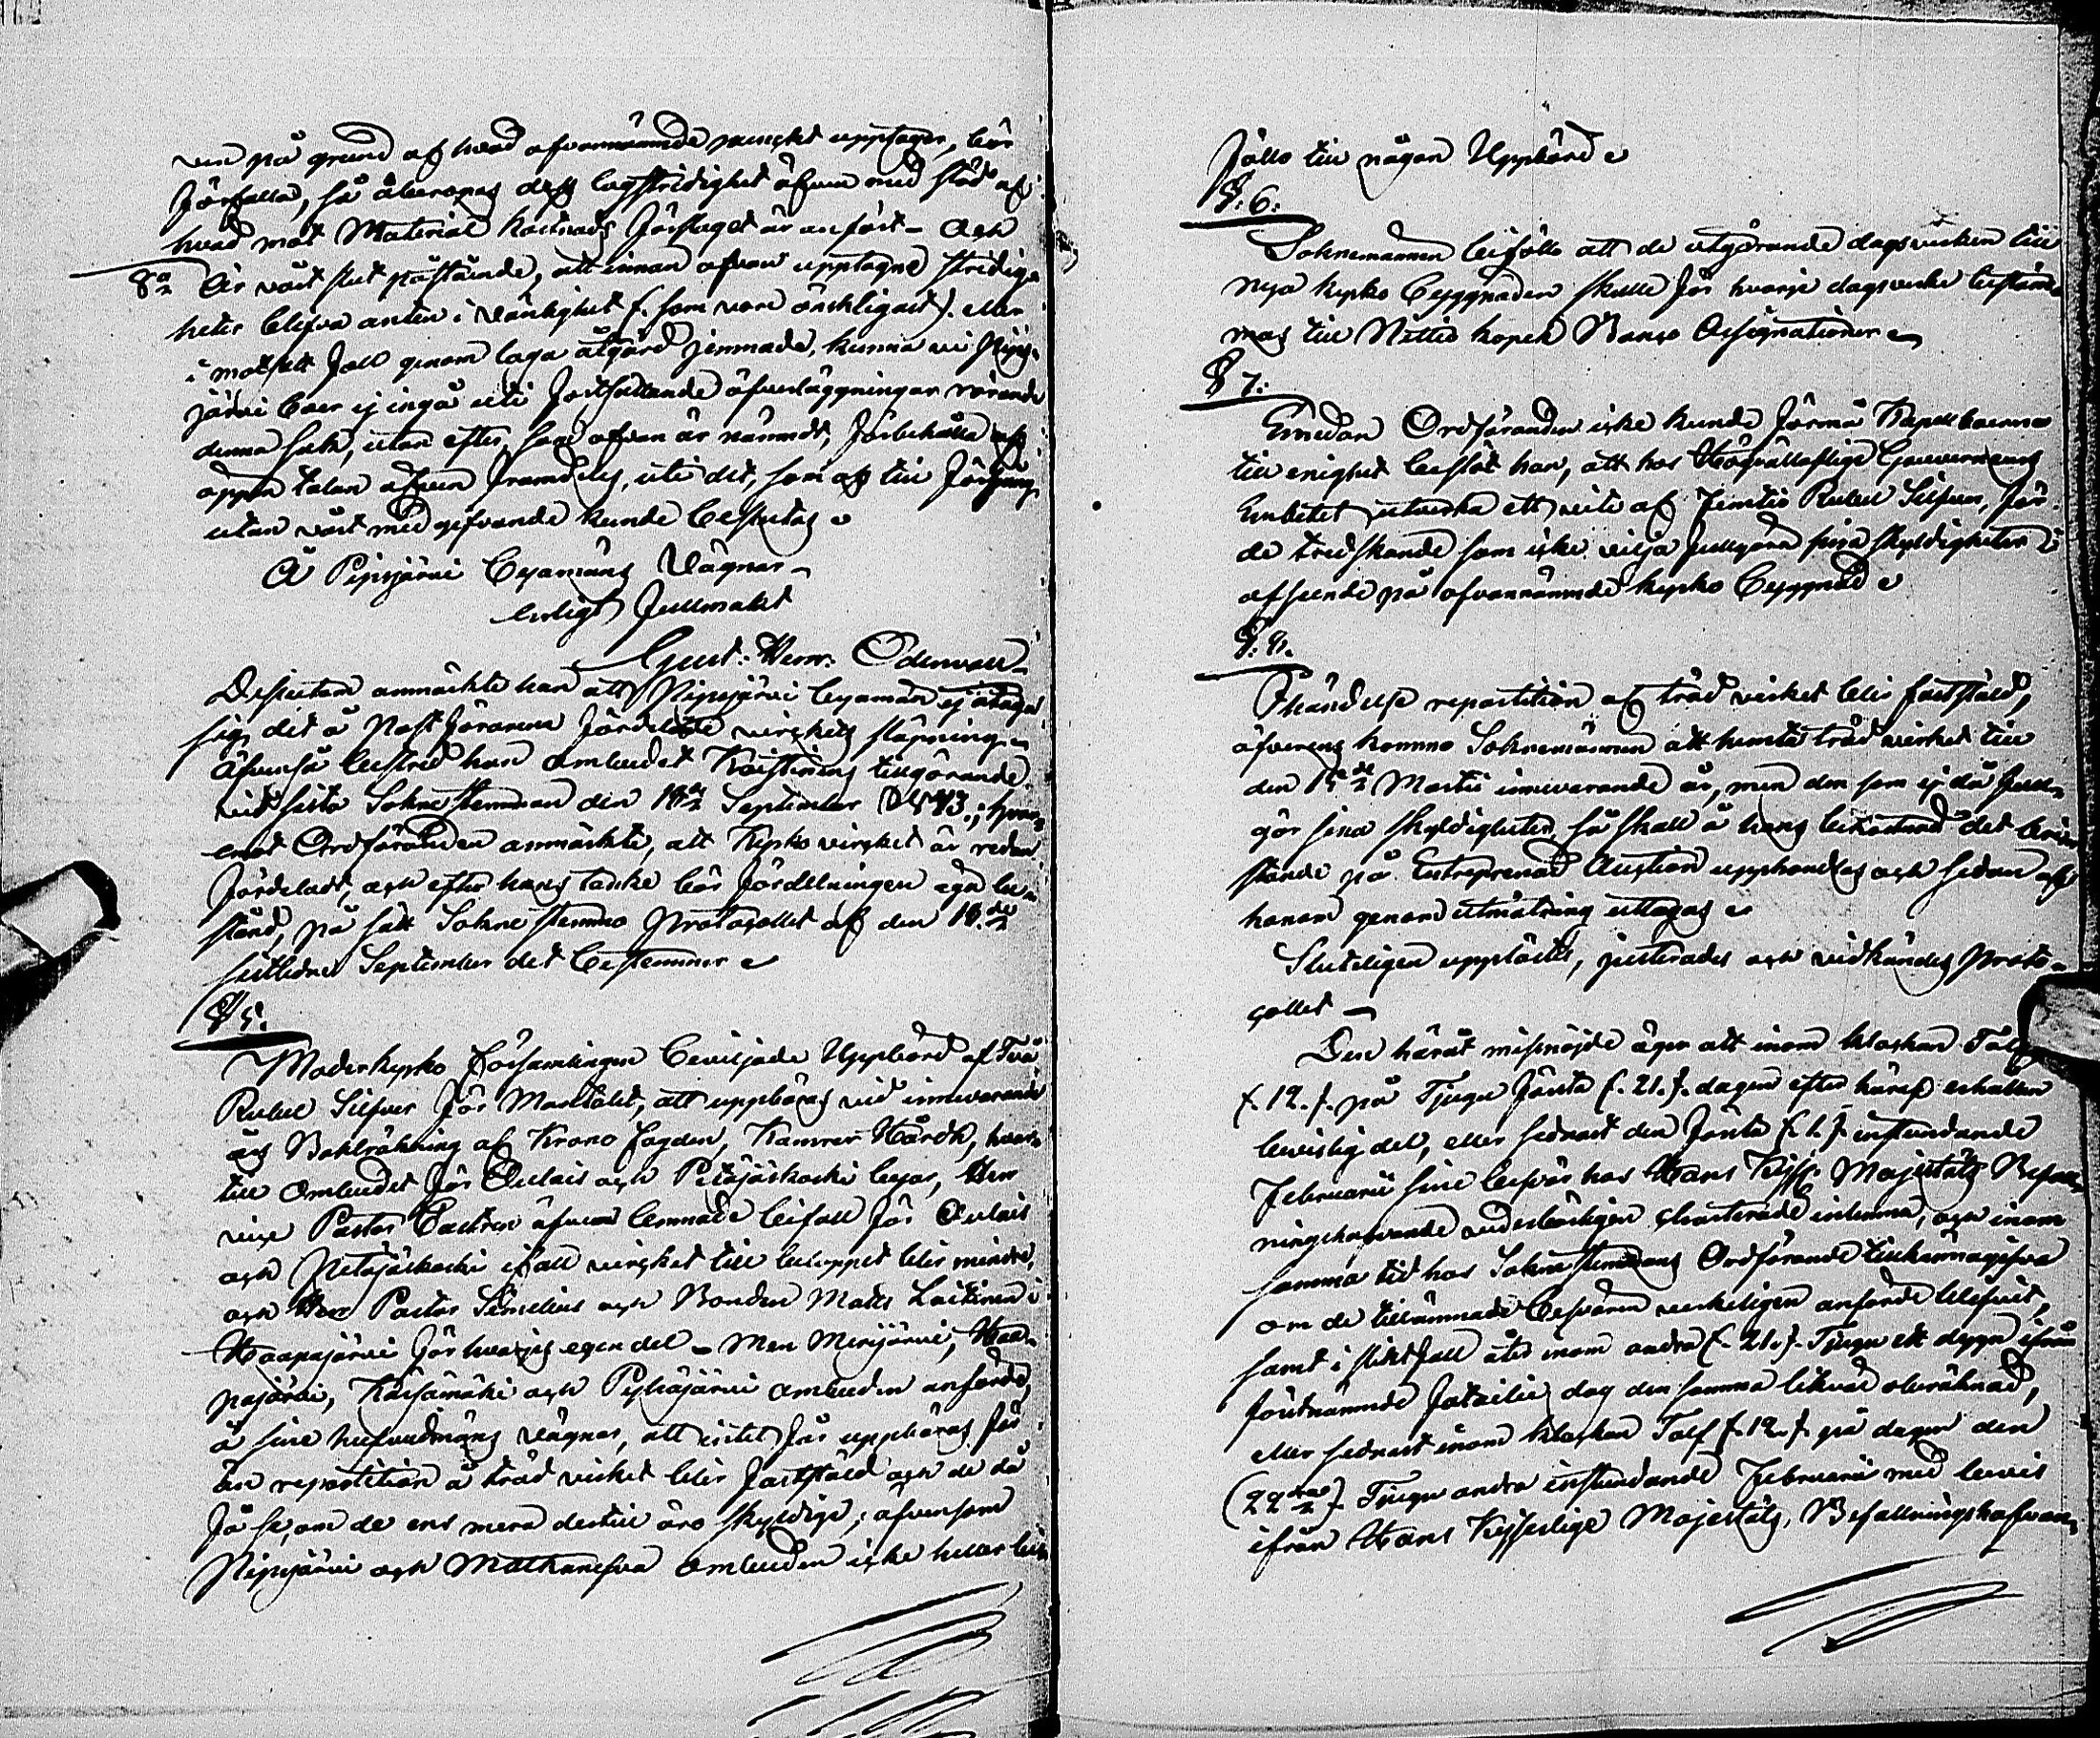 ven på grund af hvad ofvannämnde punckt upptager, bör
förfalla, så åberopas dess lagstridighet äfven med stöd af
hvad mot Material kostnads förslaget är anfört - Och
8o Är vårt slut påstående, att innan ofvan upptagne stridig-
heter blifva anten i vänlighet (: som vore önskligast :) eller
i motsatt fall genom laga åtgärd jemnade, kunna vi Pipps-
järvi boer ej ingå uti fortfallande öfverläggningar rörande
denna sak, utan efter, som ofvan är nämndt, förbehålla oss
öppen talan äfven framdeles, uti det, som oss till förfång
utan vårt medgifvande kunde beslutas
Å Pipsjärvi Byamäns Vägnar
enligt fullmakt
Gust: Herm: Odenvall
Dessutom anmärkte han att Pipsjärvi byamän ej åtaga
sig det å Nost förarena fördelte virkets släpning
Äfvenså bestred han ombudet Kaistinens tillgörande
vid sista Sokne stemman den 18de September 1843.; hvar-
emot Ordföranden anmärkte, att Kyrko virket är redan
fördeladt, och efter hans tanke bör fördelningen ega be-
stånd, på sätt Sokne stemmo Protocollet af den 18.de
sistledne September det bestemmer
§ 5.
Moderkyrko församlingen beviljade Uppbörd af Två
Rubel Silfver för Mantalet, att uppbäras vid innevarande
års Bokräkning af Krono fogden, Kamrer Hårdh, hvar-
till Ombudet för Oulais och Petäjäskoski byar, Herr
vice Pastor Castren äfven lemnade bifall för Oulais
och Petäjäskoski ifall virket till beloppet blir mindre,
och Herr Pastor Simelius och Bonden Matts Laitinen i
Haapajärvi för hvarjes egen del - Men Merijärvi, Haa-
pajärvi, Kärsämäki och Pyhäjärvi ombuden anförde,
å sine hufvudmäns vägnar, att intet får uppbäras för
än repartition å träd virket blir fastställd och de då
få se, om de ens mera dertill äro skyldige; äfvensom
Pipsjärvi och Matkaneva ombuden icke heller bi-
föllo till någon Uppbörd
§. 6.
Soknemännen biföllo att de utgörande dagsverken till
nya kyrko byggnaden skulle för hvarje dagsverke bestäm-
mas till Nittio kopek Banco Assignationer
§ 7.
Emedan Ordföranden icke kunde förmå Kapellboerne
till enighet beslöt han, att hos Högvällofliga Gouverneurs
Embetet utverka ett vite af femtio Rubel Silfver, för
de tredskande som icke vilja fullgöra sina skyldigheter i
afseende på ofvannämnde kyrko byggnad
§. 8.
I händelse repartition af träd virket blir fastställd,
öfverens kommo Soknemännen att hemta träd virket till
den 15de Martii innevarande år, men den som ej då full-
gör sina skyldigheter, så skall å hans bekostnad det åter-
stående på Entreprenad Auction upphandlas och sedan af
honom genom utmätning uttagas
Slutligen upplästes, justerades och vidkändes Proto-
collet
Den häråt missnöjde äger att inom klockan Tolf
(: 12. :) på Tjugu första (: 21. :) dagen efter häraf erhållen
bevislig del, eller sednast den första (: 1. :) instundande
Februarii sine besvär hos Hans Kejss. Majestäts Befall-
ningshafvande vederbörligen charterade inlemna, och inom
samma tid hos Sokne stemmans Ordförande tillkännagifva
om de tillämnade besvären verkeligen anförde blifvit,
samt i slikt fall åter inom andra (: 21. :) Tjugu ett dygn ifrån
förutnämnde fatalie dag den samma likväl oberäknad,
eller sednast inom klockan Tolf (: 12. :) på dagen den
(: 22dra :) Tjugu andra instundande Februarii med bevis
ifrån Hans Kejserlige Majestäts, Befallningshafvan-